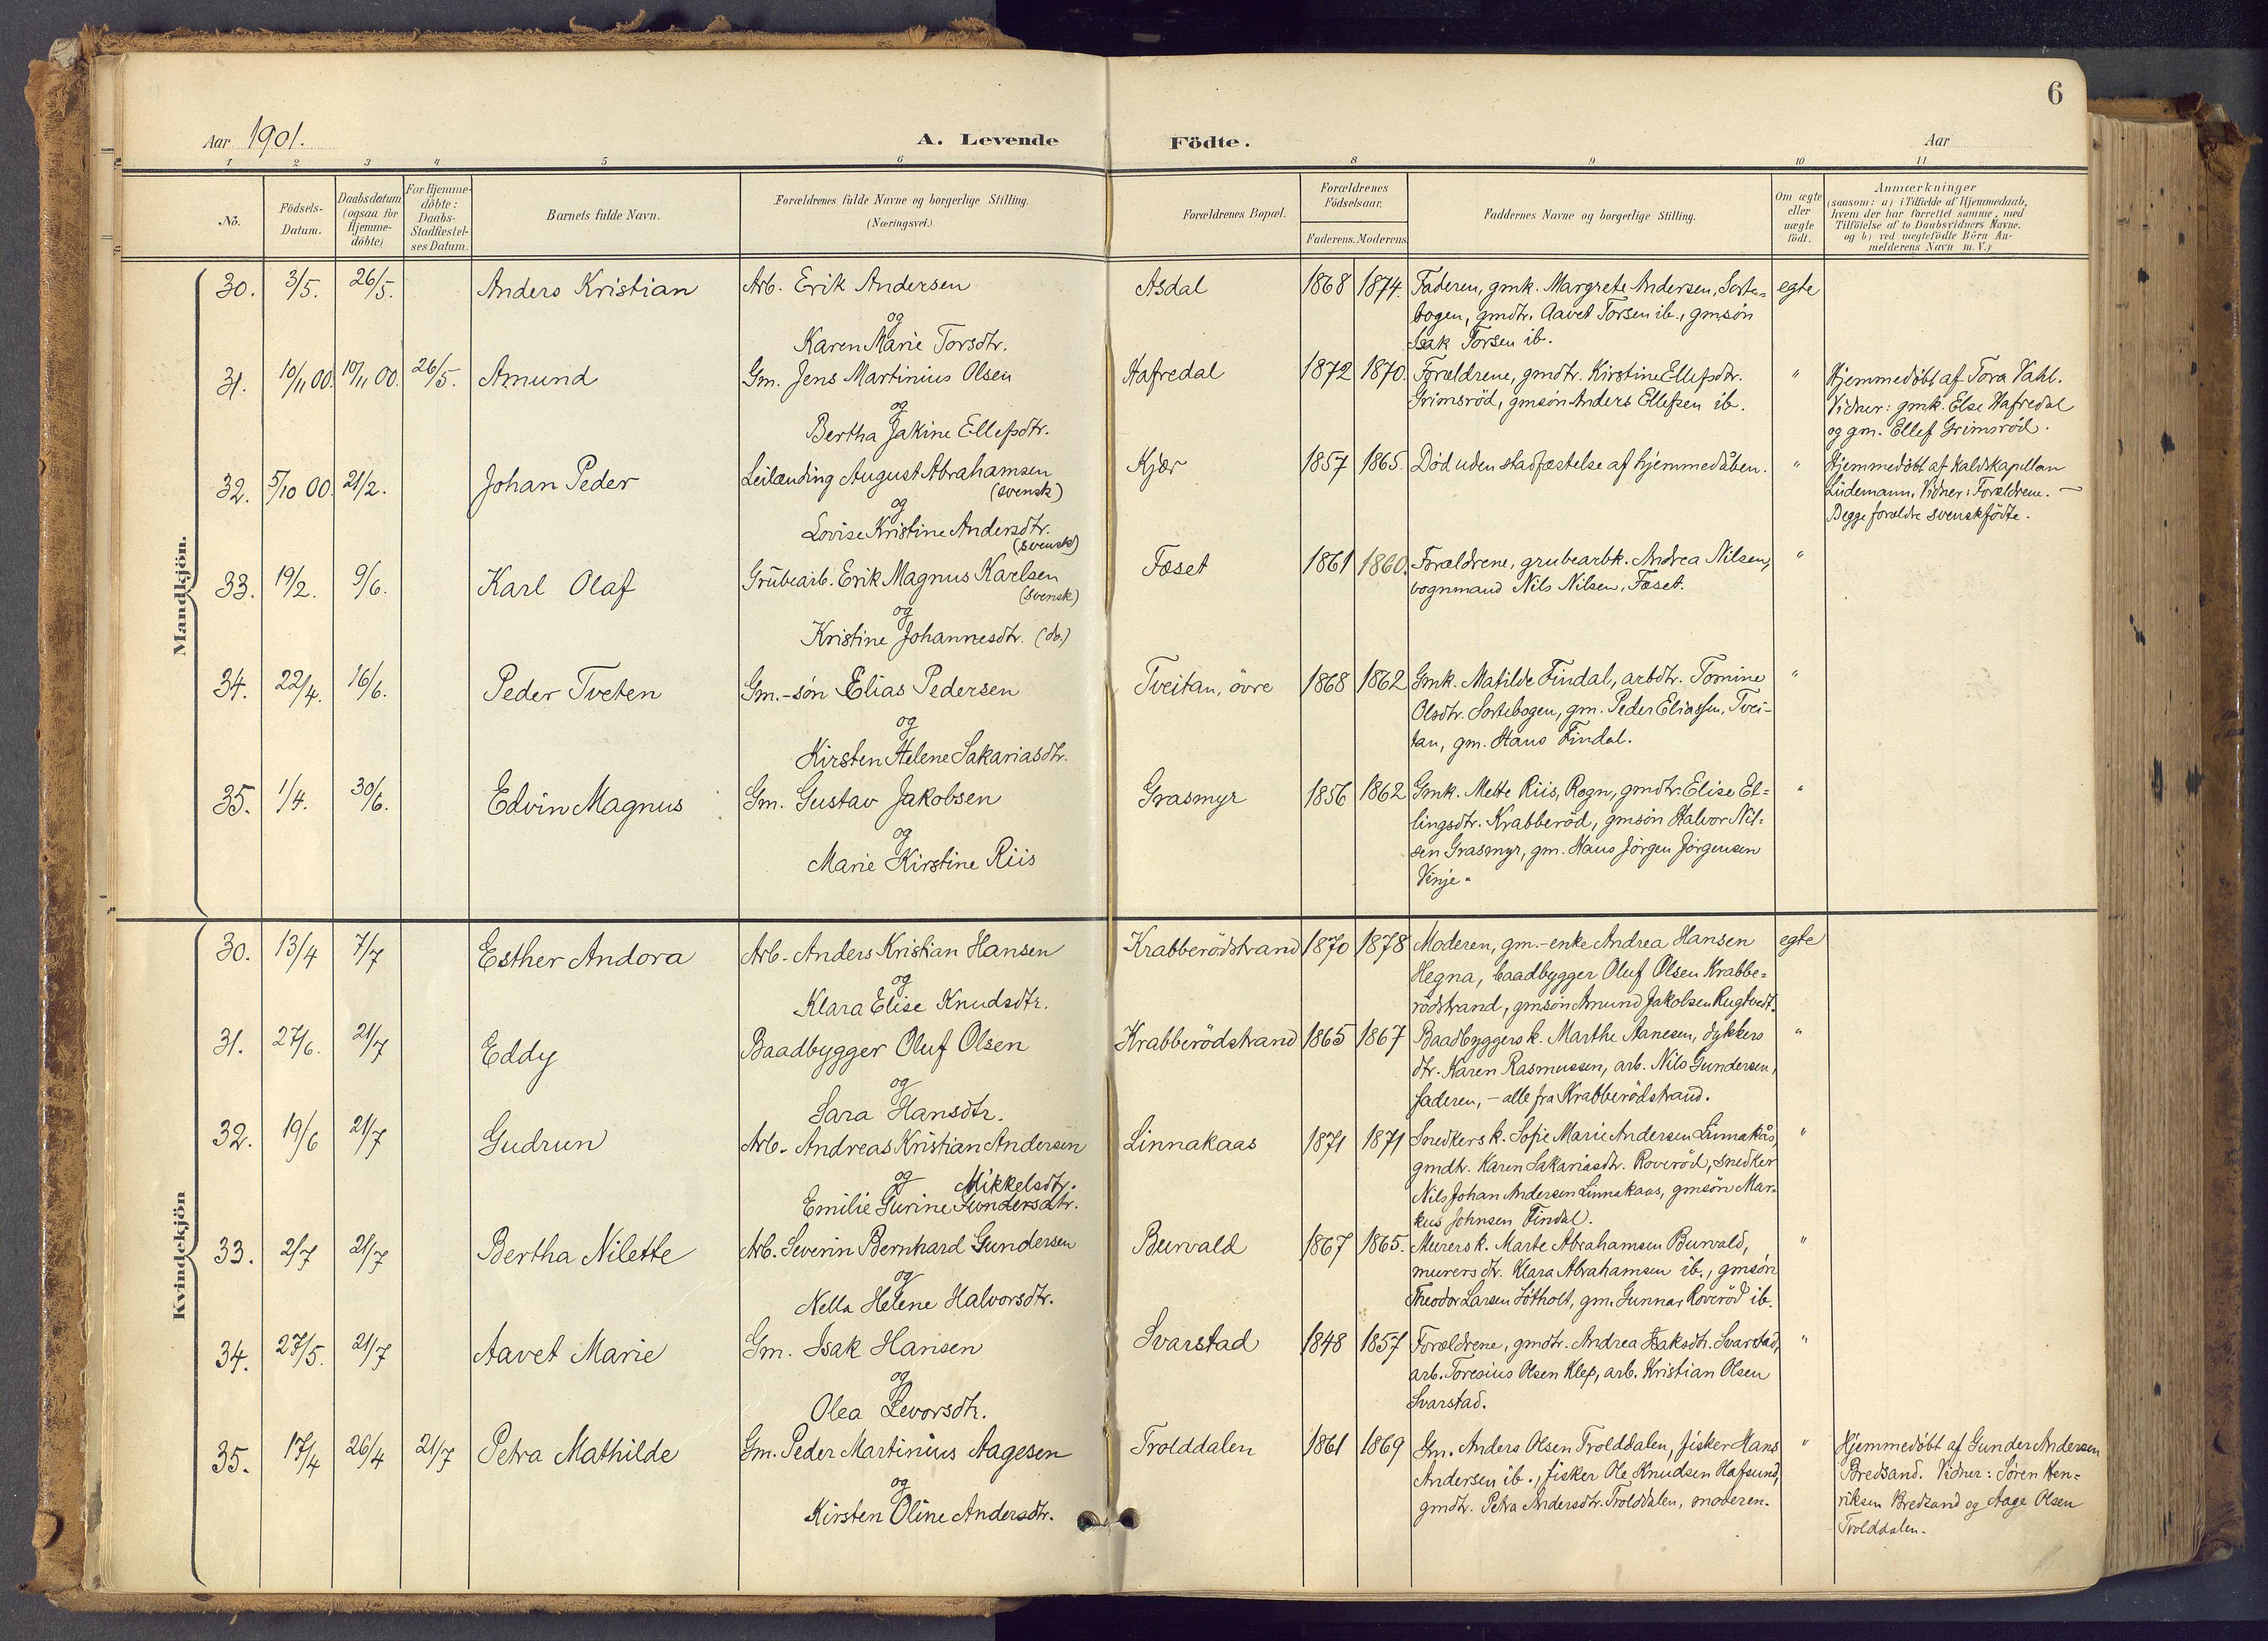 6
Aar 1901.
A. Levende Födte.
Aar
1 2 3 4 5 6 8 9 10 11
No.
Födsels-
Datum.
Daabsdatum
(ogsaa for
Hjemme-
döbte)
For Hjemme-
döbte:
Daabs-
Stadfæstel-
ses Datum.
Barnets fulde Navn.
Forældrenes fulde Navne og borgerlige Stilling.
(Næringsvei.)
Forældrenes Bopæl.
Forældrenes
Födselsaar.
Faderens. Moderens.
Faddernes Navne og borgerlige Stilling.
Om ægte
eller
uægte
födt.
Anmærkninger
(saasom: a) i Tilfælde af Hjemmedaab,
hvem der har forrettet samme, med
Tilföielse af to Daabsvidners Navne.
og b) ved uægtefödte Börn An-
melderens Navn m. V.)
Mandkjön.
30. 3/5. 26/5. Anders Kristian
Arb. Erik Andersen
og
Karen Marie Torsdtr.
Asdal 1868 1874.
Faderen, gmk. Margrete Andersen, Sorte=
bogen, gmdtr. Aavet Torsen ib., gmsön
Isak Torsen ib.
egte
31. 10/11 00. 10/11 00. 26/5. Amund
Gm. Jens Martinius Olsen
og
Bertha Jakine Ellefsdtr.
Hafredal 1872 1870.
Forældrene, gmdtr. Kirstine Ellefsdtr.
Grimsröd, gmsön Anders Ellefsen ib.
"
Hjemmedöbt af Tora Vahl.
Vidner: gmk. Else Hafredal
og gm. Ellef Grimsröd.
32. 5/10 00. 21/2. Johan Peder
Leilænding August Abrahamsen
(svensk)
og
Lovise Kristine Andersdtr.
(svensk)
Kjær 1857 1865.
Död uden stadfæstelse af hjemmedåben.
"
Hjemmedöbt af kaldskapellan
Lüdemann. Vidner: Forældrene. —
Begge forældre svenskfödte.
33. 19/2. 9/6. Karl Olaf
Grubearb. Erik Magnus Karlsen
(svensk)
og
Kristine Johannesdtr. (do.)
Fæset 1861 1860.
Forældrene, grubearbk. Andrea Nilsen,
vognmand Nils Nilsen, Fæset.
"
34. 22/4. 16/6. Peder Tveten
Gm.-sön Elias Pedersen
og
Kirsten Helene Sakariasdtr.
Tveitan, övre 1868 1862
Gmk. Matilde Findal, arbdtr. Tomine
Olsdtr. Sortebogen, gm. Peder Eliassen, Tvei-
tan, gm. Hans Findal.
"
35. 1/4. 30/6. Edvin Magnus
Gm. Gustav Jakobsen
og
Marie Kirstine Riis
Grasmyr 1856 1862
Gmk. Mette Riis, Rogn, gmdtr. Elise El=
lingsdtr. Krabberöd, gmsön Halvor Nil=
sen Grasmyr, gm. Hans Jörgen Jörgensen
Vinje.
"
Kvindekjön
30. 13/4 7/7 Esther Andora
Arb. Anders Kristian Hansen
og
Klara Elise Knudsdtr.
Krabberödstrand 1870 1878
Moderen, gm.-enke Andrea Hansen
Hegna, baadbygger Oluf Olsen Krabbe=
rödstrand, gmsön Amund Jakobsen Rugtvedt.
egte
31. 27/6. 21/7 Eddy
Baadbygger Oluf Olsen
og
Sara Hansdtr.
Krabberödstrand 1865 1867
Baadbyggersk. Marthe Aanesen, dykkers
dtr. Karen Rasmussen, arb. Nils Gundersen,
faderen, – alle fra Krabberödstrand.
"
32. 19/6 21/7 Gudrun
Arb. Andreas Kristian Andersen
og Mikkelsdtr.
Emilie Gurine Gundersdtr.
Linnakaas 1871 1871
Snedkersk. Sofie Marie Andersen Linnakås,
gmdtr. Karen Sakariasdtr. Roveröd, snedker
Nils Johan Andersen Linnakaas, gmsön Mar=
kus Johnsen Findal.
"
33. 2/7 21/7 Bertha Nilette
Arb. Severin Bernhard Gundersen
og
Nella Helene Halvorsdtr.
Burvald 1867 1865.
Murersk. Marte Abrahamsen Burvald,
murersdtr. Klara Abrahamsen ib., gmsön
Theodor Larsen Götholt, gm. Gunnar Roveröd ib.
"
34. 27/5. 21/7 Aavet Marie
Gm. Isak Hansen
og
Olea Levorsdtr.
Svarstad 1848 1857
Forældrene, gmdtr. Andrea Isaksdtr. Svarstad,
arb. Toresius Olsen Klep, arb. Kristian Olsen
Svarstad.
"
35. 17/4 26/4 21/7 Petra Mathilde
Gm. Peder Martinius Aagesen
og
Kirsten Oline Andersdtr.
Trolddalen 1861 1869
Gm. Anders Olsen Trolddalen, fisker Hans
Andersen ib., fisker Ole Knudsen Hafsund,
gmdtr. Petra Andersdtr. Trolddalen, moderen.
"
Hjemmedöbt af Gunder Andersen
Bredsand. Vidner: Sören Hen=
riksen Bredsand og Aage Olsen
Trolddalen.